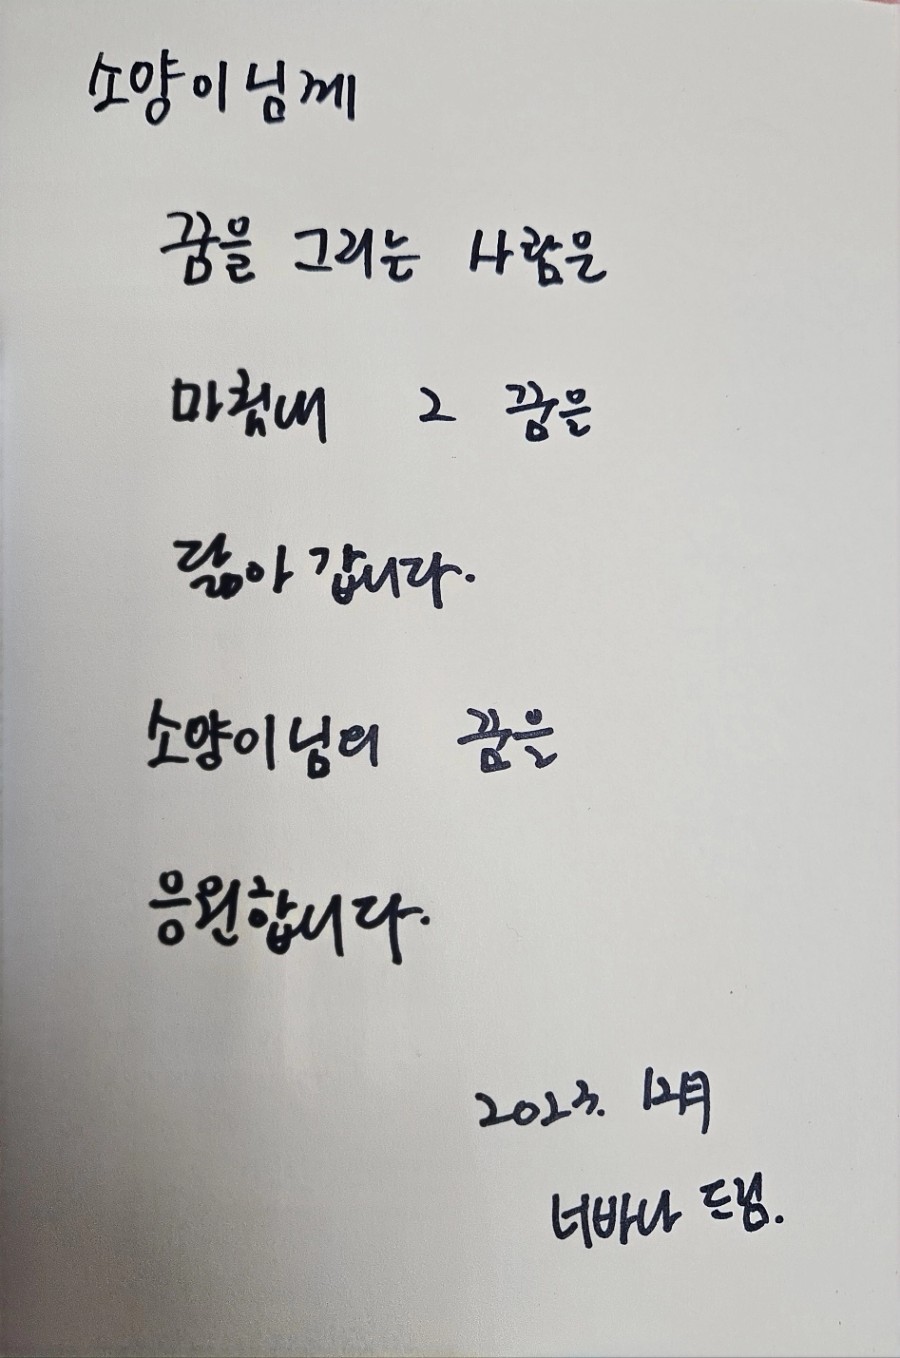 소양이님께
꿈을 그리는 사람은
마침내 그 꿈을
닮아 갑니다.
소양이님의 꿈을
응원합니다.
2023. 12月
너바나 드림.